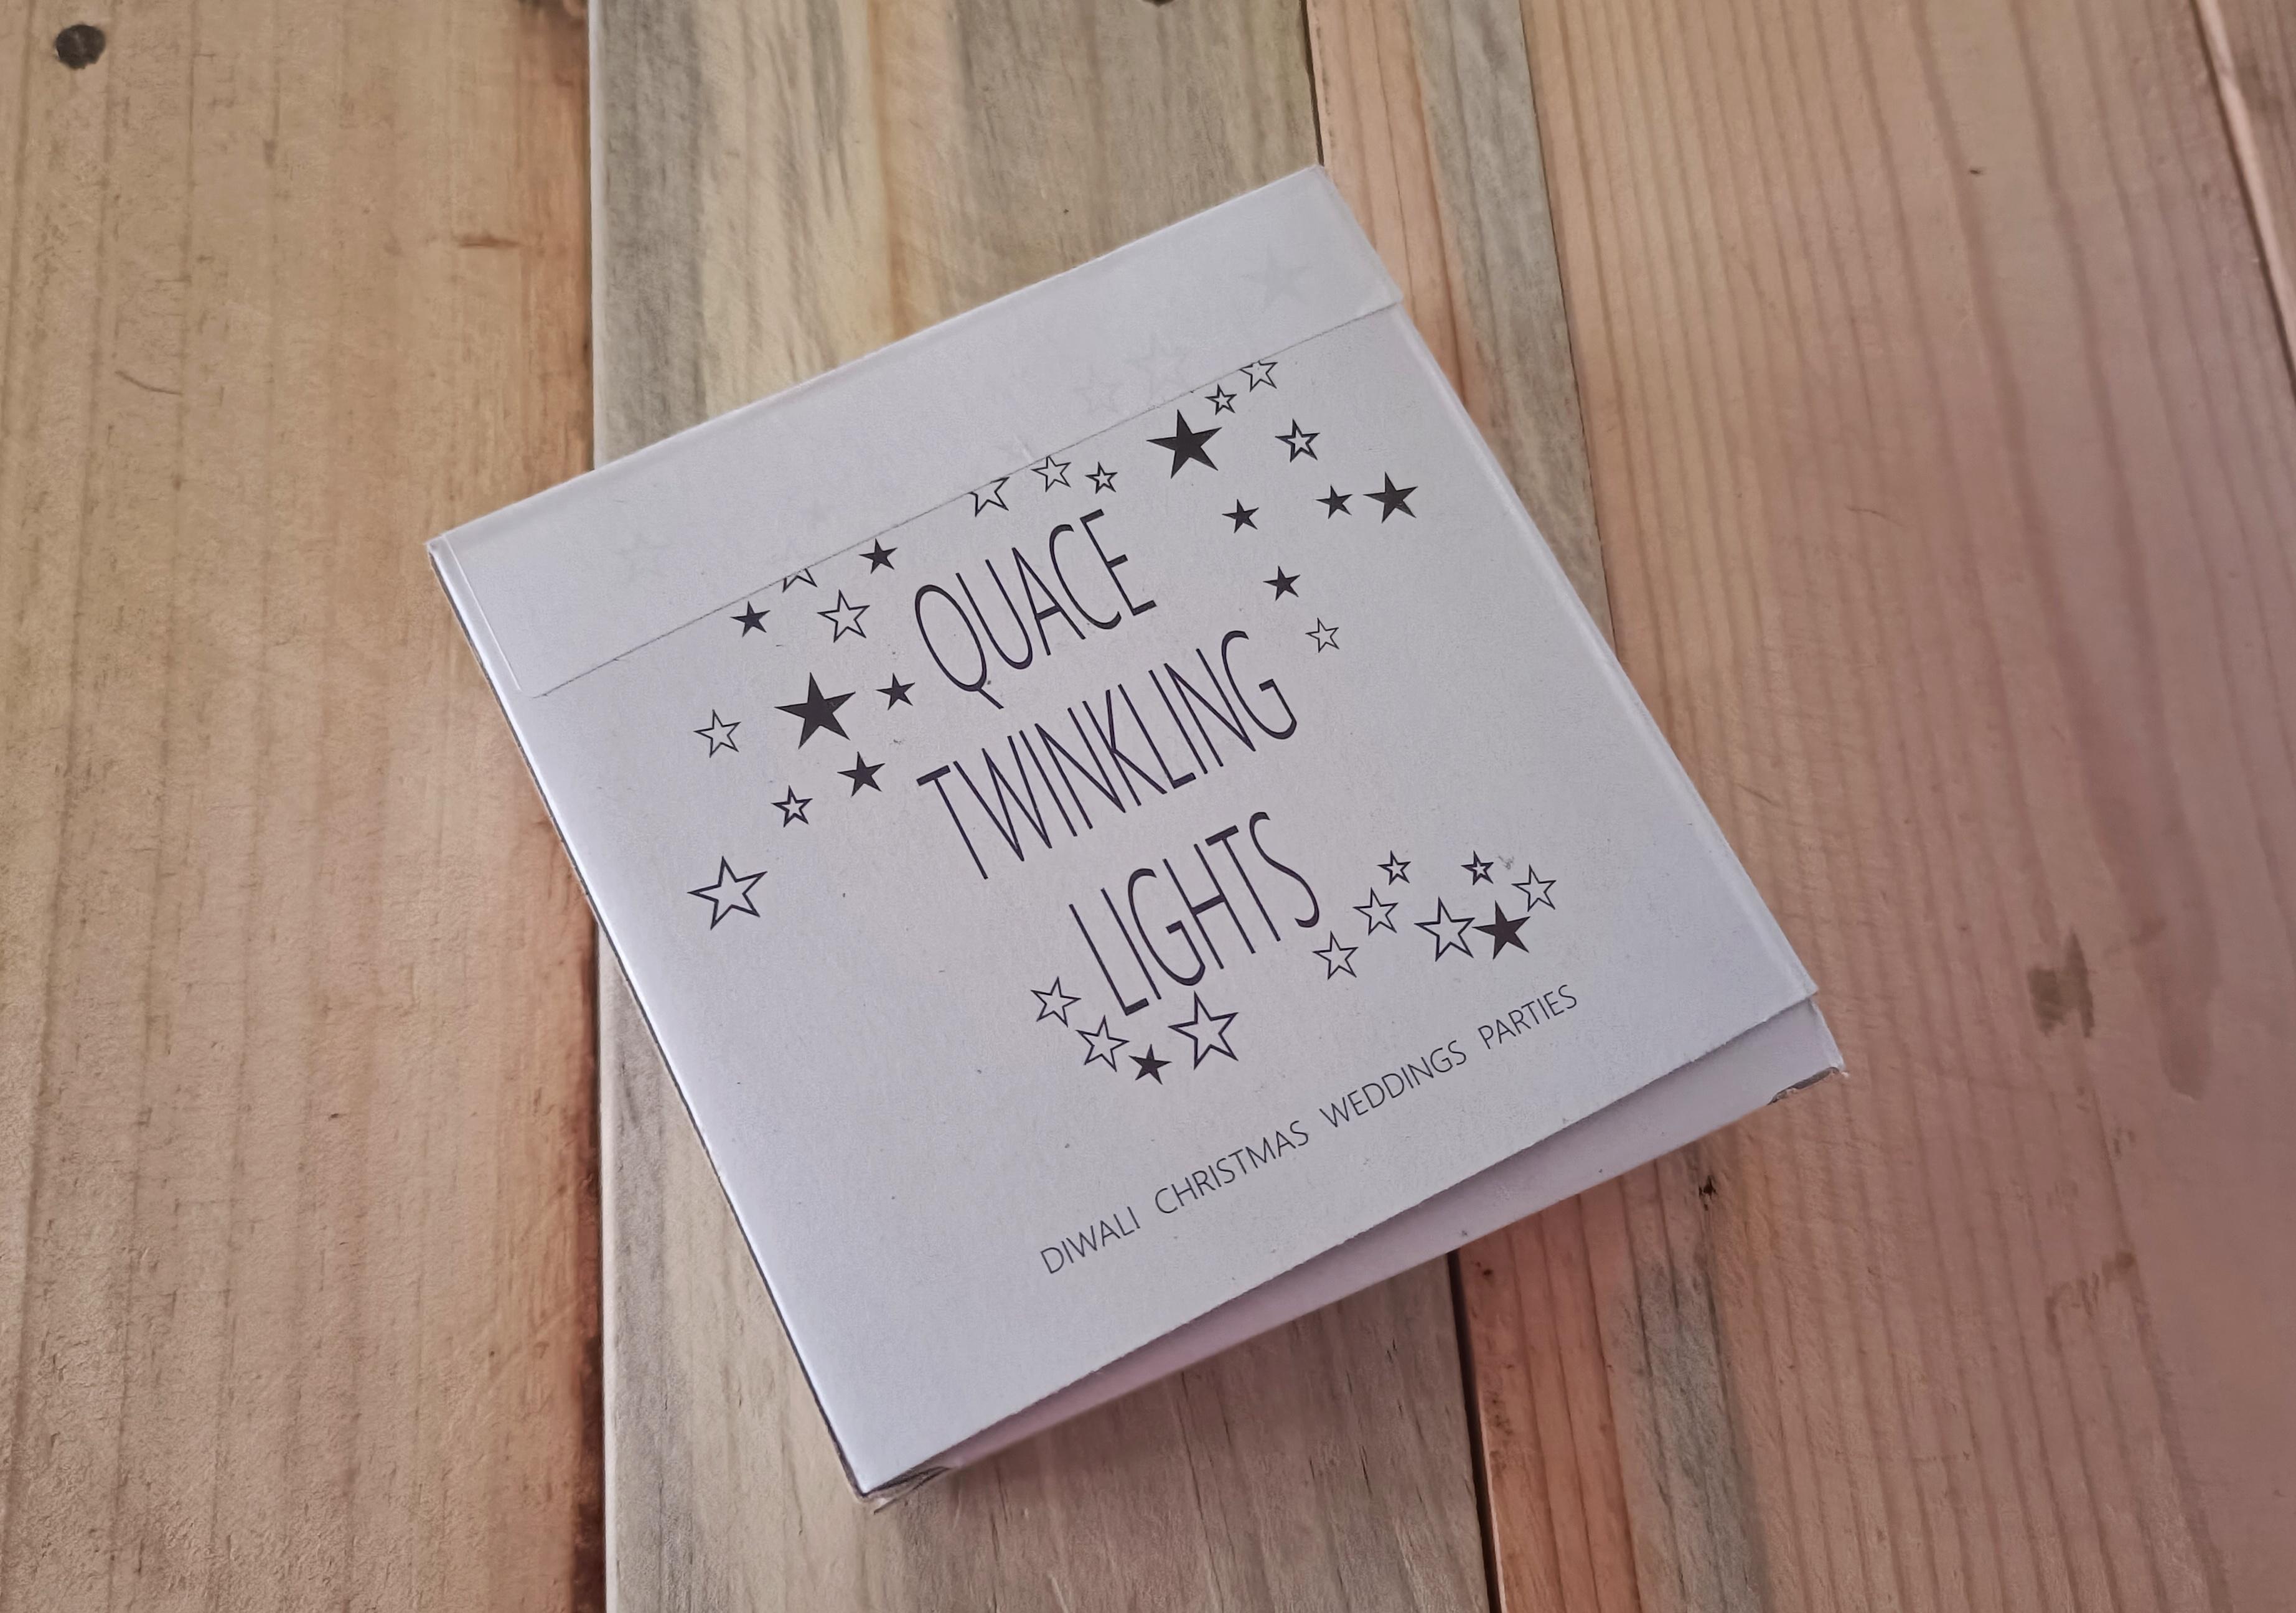 QUACE
TWINKLING
LIGHTS
DIWALI CHRISTMAS WEDDINGS PARTIES